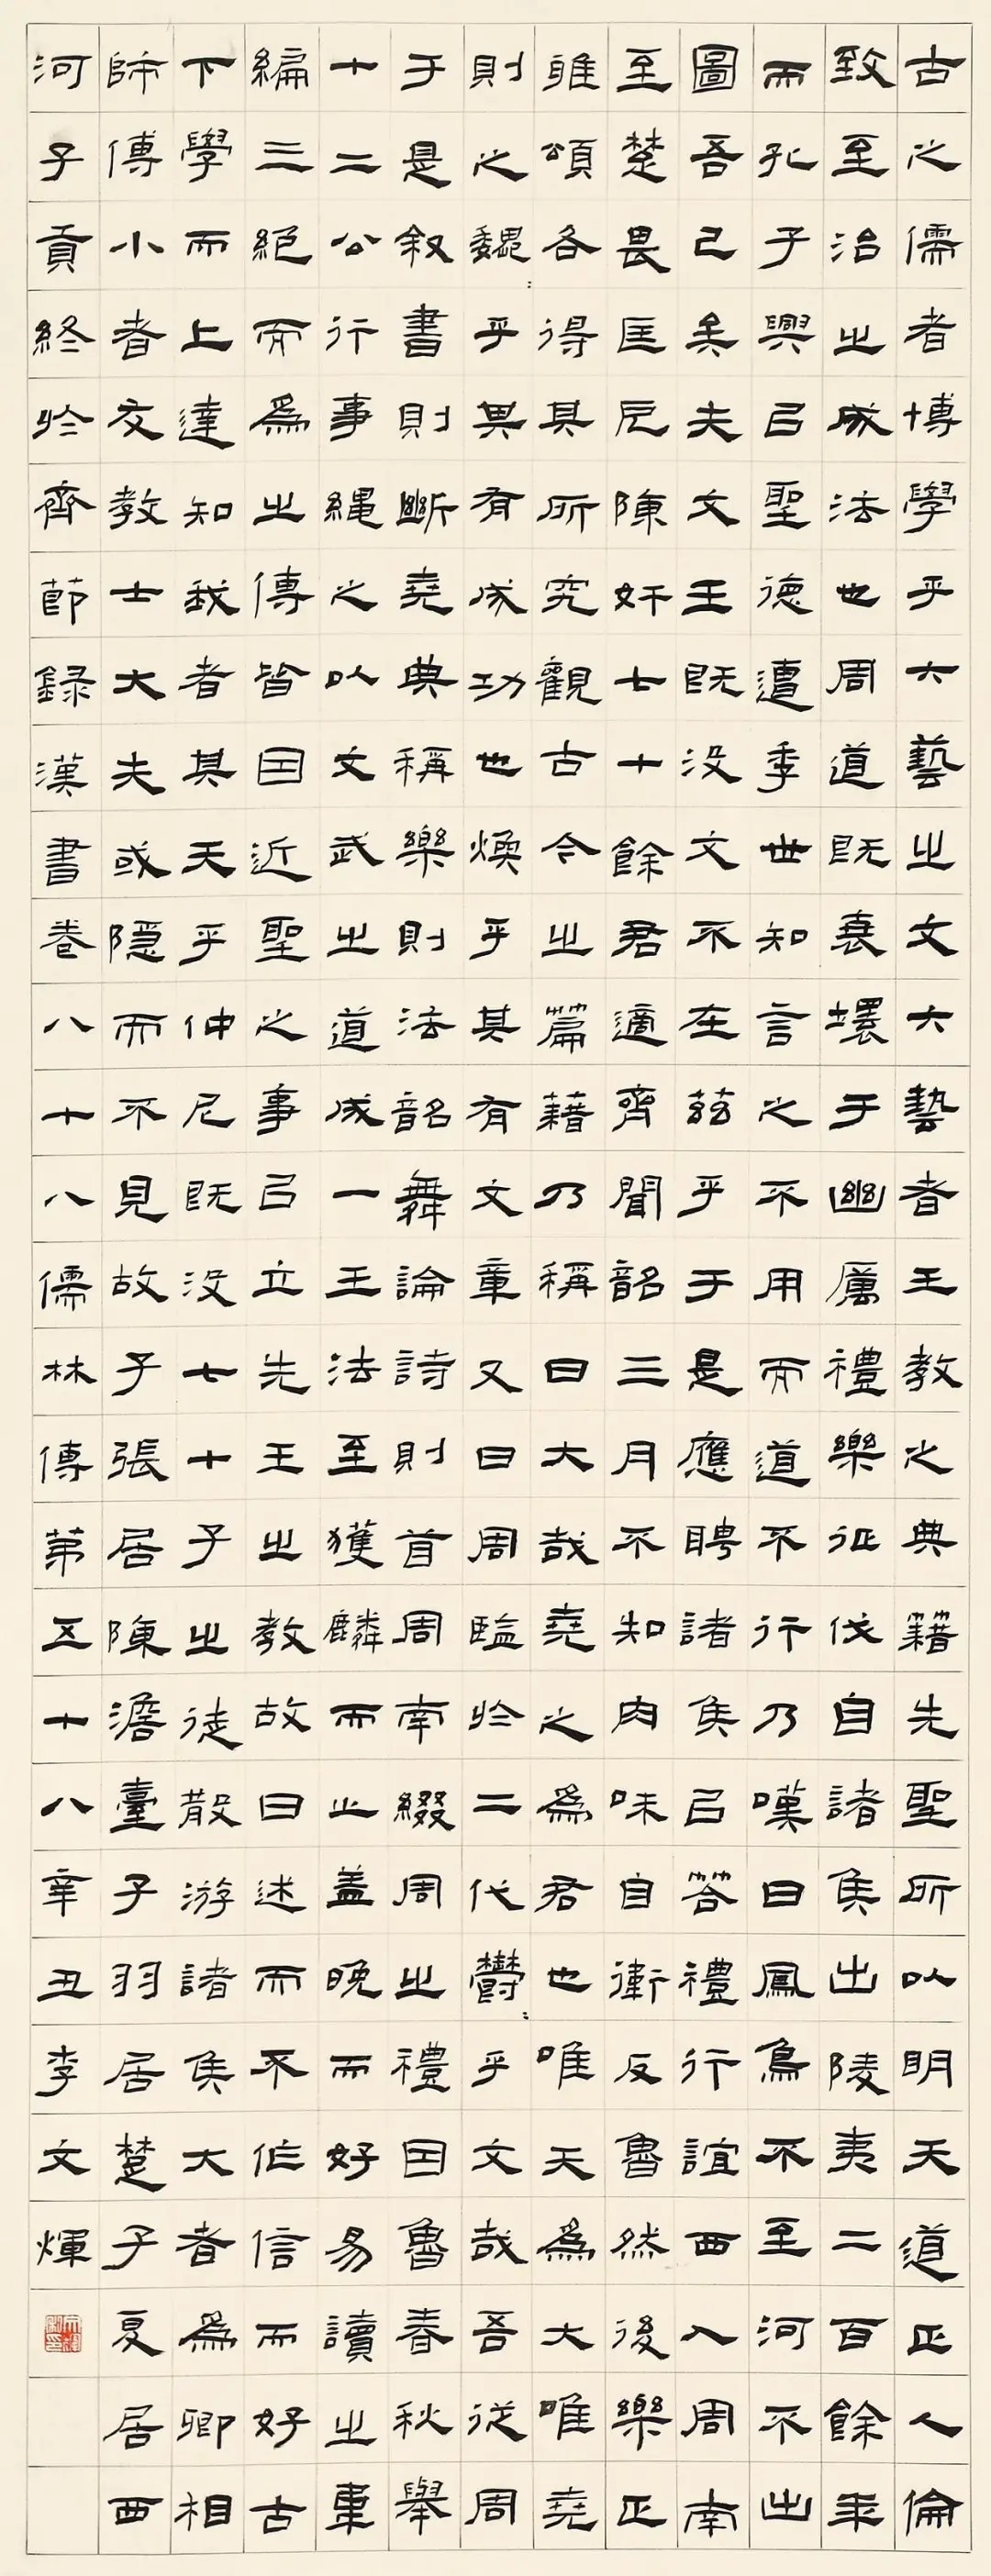 古之儒者博學乎六藝之文六藝者王教之典籍先聖所以明天道正人倫
致至治之成法也周道既衰壞于幽厲禮樂征伐自諸侯出陵夷二百餘年
而孔子興㠯聖德遭季世知言之不用而道不行乃嘆曰鳳鳥不至河不出
圖吾已矣夫文王既没文不在茲乎于是應聘諸侯㠯答禮行誼西入周南
至楚畏匡戹陳奸七十餘君適齊聞韶三月不知肉味自衛反魯然後樂正
雅頌各得其所究觀古今之篇籍乃稱曰大哉堯之為君也唯天為大唯堯
則之魏:乎其有成功也煥乎其有文章又曰周監於二代鬱:乎文哉吾從周
于是叙書則斷堯典稱樂則法韶舞論詩則首周南綴周之禮因魯春秋舉
十二公行事繩之以文武之道成一王法至獲麟而止盖晚而好易讀之韋
編三絕而為之傳皆因近聖之事㠯立先王之教故曰述而不作信而好古
下學而上達知我者其天乎仲尼既没七十子之徒散游諸侯大者為卿相
師傅小者友教士大夫或隱而不見故子張居陳澹臺子羽居楚子夏居西
河子貢終於齊節錄漢書卷八十八儒林傳第五十八辛丑李文煇